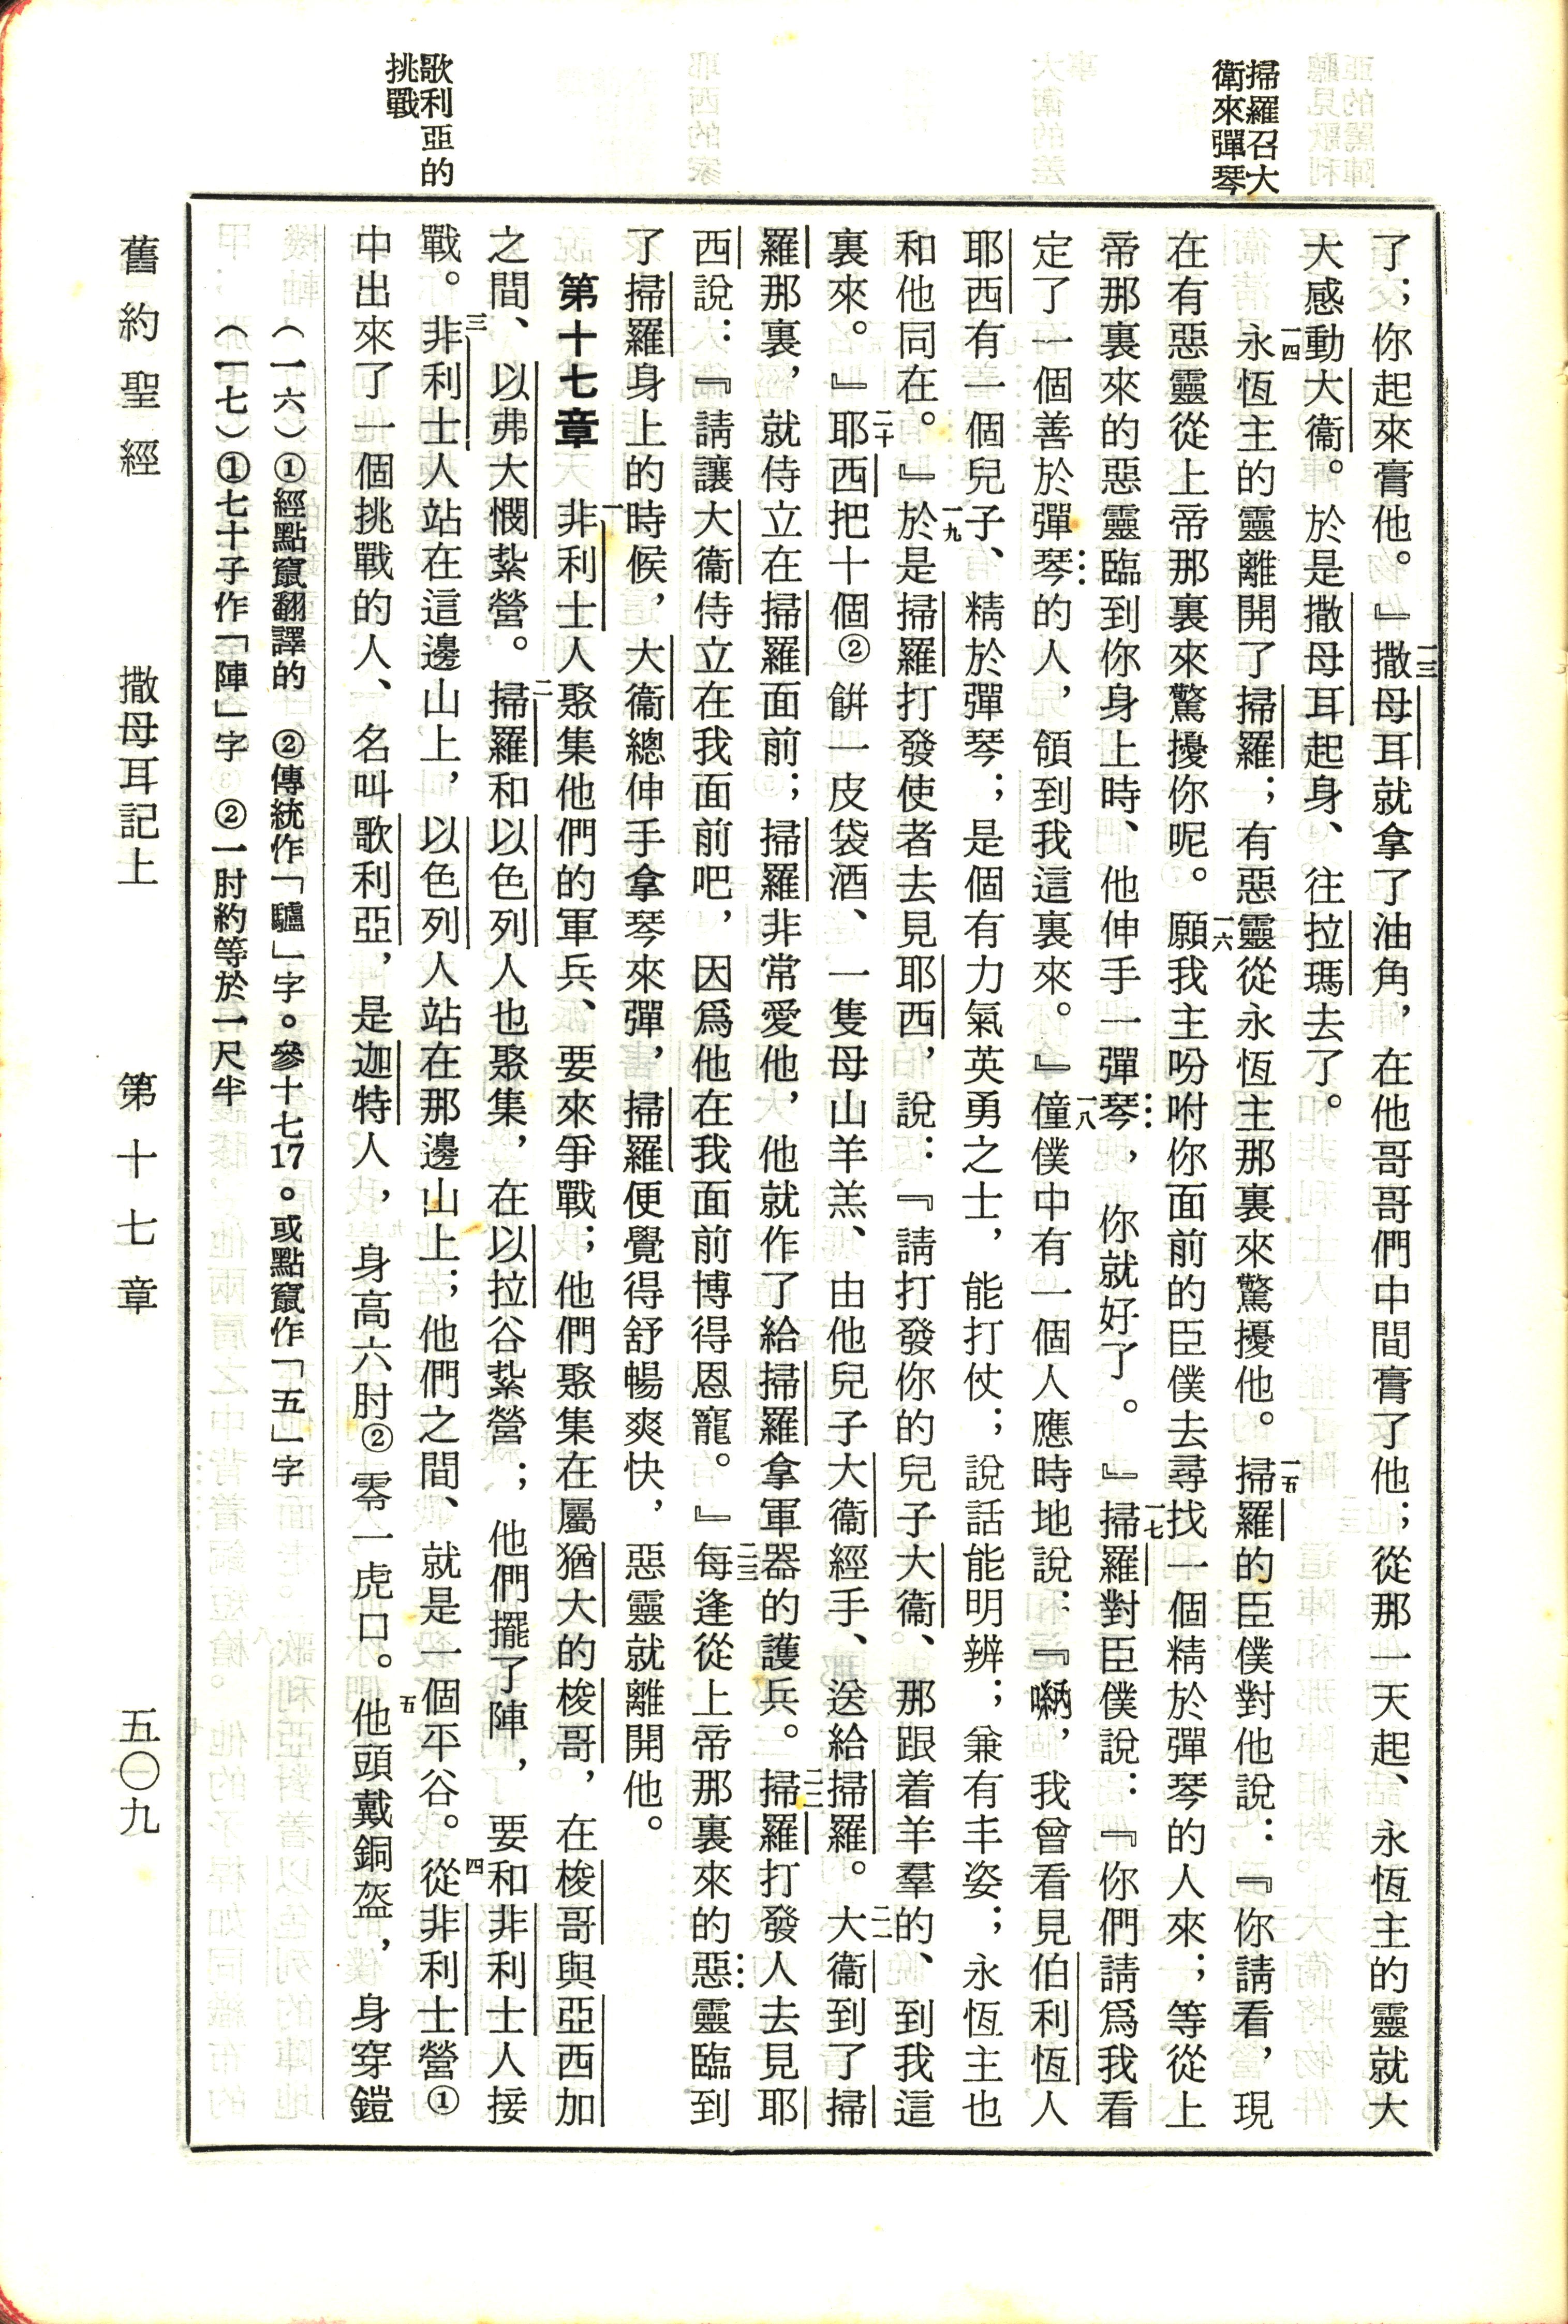 掃羅召大
衛來彈琴
歌利亞的
挑戰
了；你起來膏他。』一三撒母耳就拿了油角，在他哥哥們中間膏了他；從那一天起、永恆主的靈就大
大感動大衞。於是撒母耳起身、往拉瑪去了。
一四永恆主的靈離開了掃羅；有惡靈從永恆主那裏來驚擾他。一五掃羅的臣僕對他說：『你請看，現
在有惡靈從上帝那裏來驚擾你呢。一六願我主吩咐你面前的臣僕去尋找一個精於彈琴的人來；等從上
帝那裏來的惡靈臨到你身上時、他伸手一彈琴，你就好了。』一七掃羅對臣僕說：『你們請爲我看
定了一個善於彈琴的人，領到我這裏來。』一八僮僕中有一個人應時地說：『㘓，我曾看見伯利恆人
耶西有一個兒子、精於彈琴；是個有力氣英勇之士，能打仗；說話能明辨；兼有丰姿；永恆主也
和他同在。』一九於是掃羅打發使者去見耶西，說：『請打發你的兒子大衞、那跟着羊羣的、到我這
裏來。』二十耶西把十個②餅一皮袋酒、一隻母山羊羔、由他兒子大衞經手、送給掃羅。二一大衞到了掃
羅那裏，就侍立在掃羅面前；掃羅非常愛他，他就作了給掃羅拿軍器的護兵。二二掃羅打發人去見耶
西說：『請讓大衞侍立在我面前吧，因爲他在我面前博得恩寵。』二三每逢從上帝那裏來的惡靈臨到
了掃羅身上的時候，大衞總伸手拿琴來彈，掃羅便覺得舒暢爽快，惡靈就離開他。
第十七章　一非利士人聚集他們的軍兵、要來爭戰；他們聚集在屬猶大的梭哥，在梭哥與亞西加
之間、以弗大憫紮營。二掃羅和以色列人也聚集，在以拉谷紮營；他們擺了陣，要和非利士人接
戰。三非利士人站在這邊山上，以色列人站在那邊山上；他們之間、就是一個平谷。四從非利士營①
中出來了一個挑戰的人、名叫歌利亞，是迦特人，身高六肘②零一虎口。五他頭戴銅盔，身穿鎧
（一六）①經點竄翻譯的　②傳統作「驢」字。參十七17。或點竄作「五」字
（一七）①七十子作「陣」字　②一肘約等於一尺半
舊約聖經　撒母耳記上　第十七章　五〇九